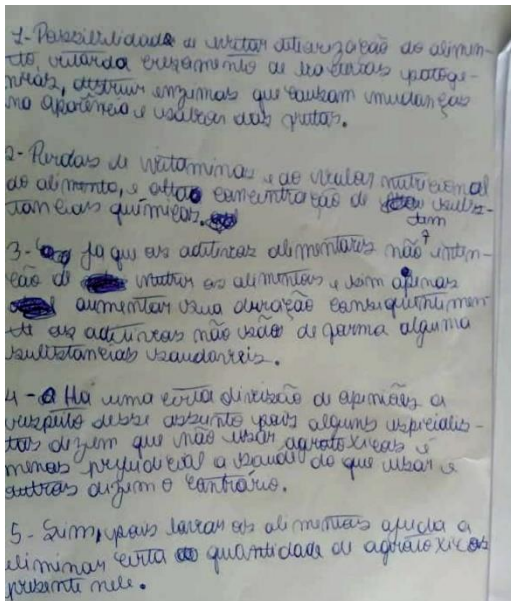 1- Possibilidade de evitar deteorização do alimen-
to, retarda crescimento de bactérias patoge-
nicas, destruir enzimas que causam mudanças
na aparência e sabor das frutas.
2- Perdas de vitaminas e do valor nutricional
do alimento, e alta concentração de subs-
tancias químicas.
3- Ja que os aditivos alimentares não tem inten-
ção de nutrir os alimentos e sim apenas
aumentar sua duração consequentimen-
te os aditivos não são de forma alguma
substancias saudaveis.
4- Há uma certa divisão de opiniões a
respeito desse assunto pois alguns especialis-
tas dizem que não usar agrotoxicos é
menos prejudicial a saude do que usar e
outros dizem o contrário.
5- Sim, pois lavar os alimentos ajuda a
eliminar certa quantidade de agrotoxicos
presente nele.